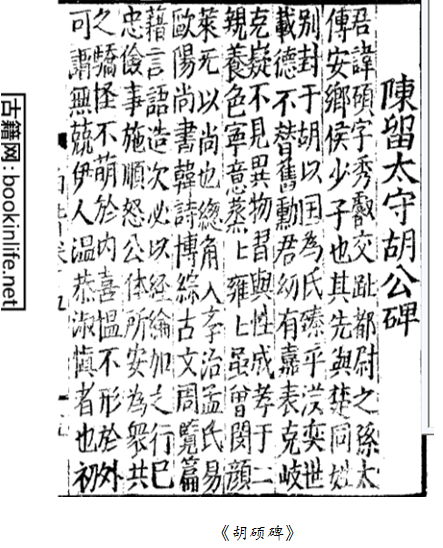 陳留太守胡公碑
君諱碩字秀叡交趾都尉之孫太
傅安鄉侯少子也其先與楚同姓
別封于胡以国為氏臻乎漢奕世
載德不替舊勳君幼有嘉表克岐
克嶷不見異物習與性成孝于二
親養色寧意蒸〻雍〻雖曾閔顔
萊无以尚也總角入孝治孟氏易
歐陽尚書韓詩博綜古文周覽篇
籍言語造次必以経綸加之行巳
忠儉事施順恕公体所安為衆共
之驕怪不萌於内喜慍不形於外
可謂無競伊人温恭淑慎者也初
古籍网:bookinlife.net
《胡硕碑》